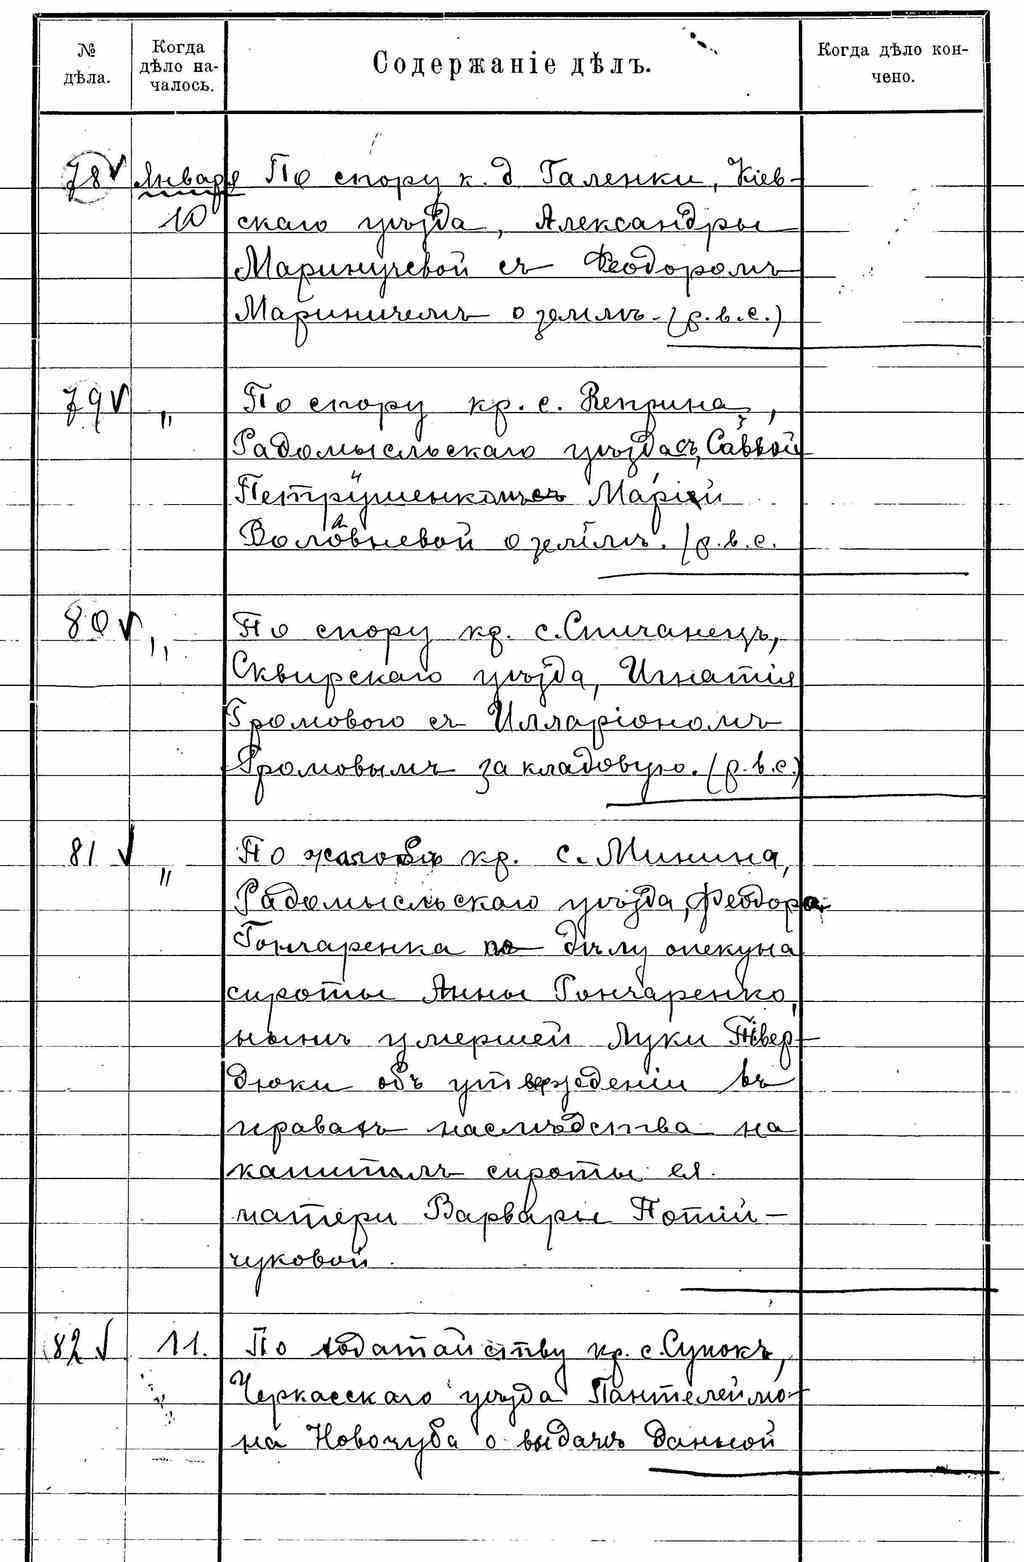 № дѣла.
Когда дѣло на-
чалось.
Содержаніе дѣлъ.
Когда дѣло кон-
чено.
78 Января По спору к. д Галенки, Кіев-
10 скаго уѣзда, Александры
Маринучевой съ Феодоромъ
Мариничемъ о землѣ. (р.в.с.)
79 " По спору кр. с. Веприна,
Радомысльскаго уѣзда, Саввой
Петрушенкомъ съ Маріей
Воловневой о землѣ. (р.в.с.
80 " По спору кр. с. Спичанецъ,
Сквирскаго уѣзда, Игнатія
Громового съ Илларіономъ
Громовымъ за кладовую. (р.в.с.)
81 " По жалобѣ кр. с. Минина,
Радомысльскаго уѣзда, Феодора
Гончаренка по дѣлу опекуна
сироты Анны Гончаренко,
нынѣ умершей Луки Твер-
дюки объ утвержденіи въ
правахъ наслѣдства на
капиталъ сироты ея
матери Варвары Потій-
чуковой.
82 11. По ходатайству кр. с. Сунокъ,
Черкасскаго уѣзда Пантелеймо-
на Новочуба о выдачѣ данной